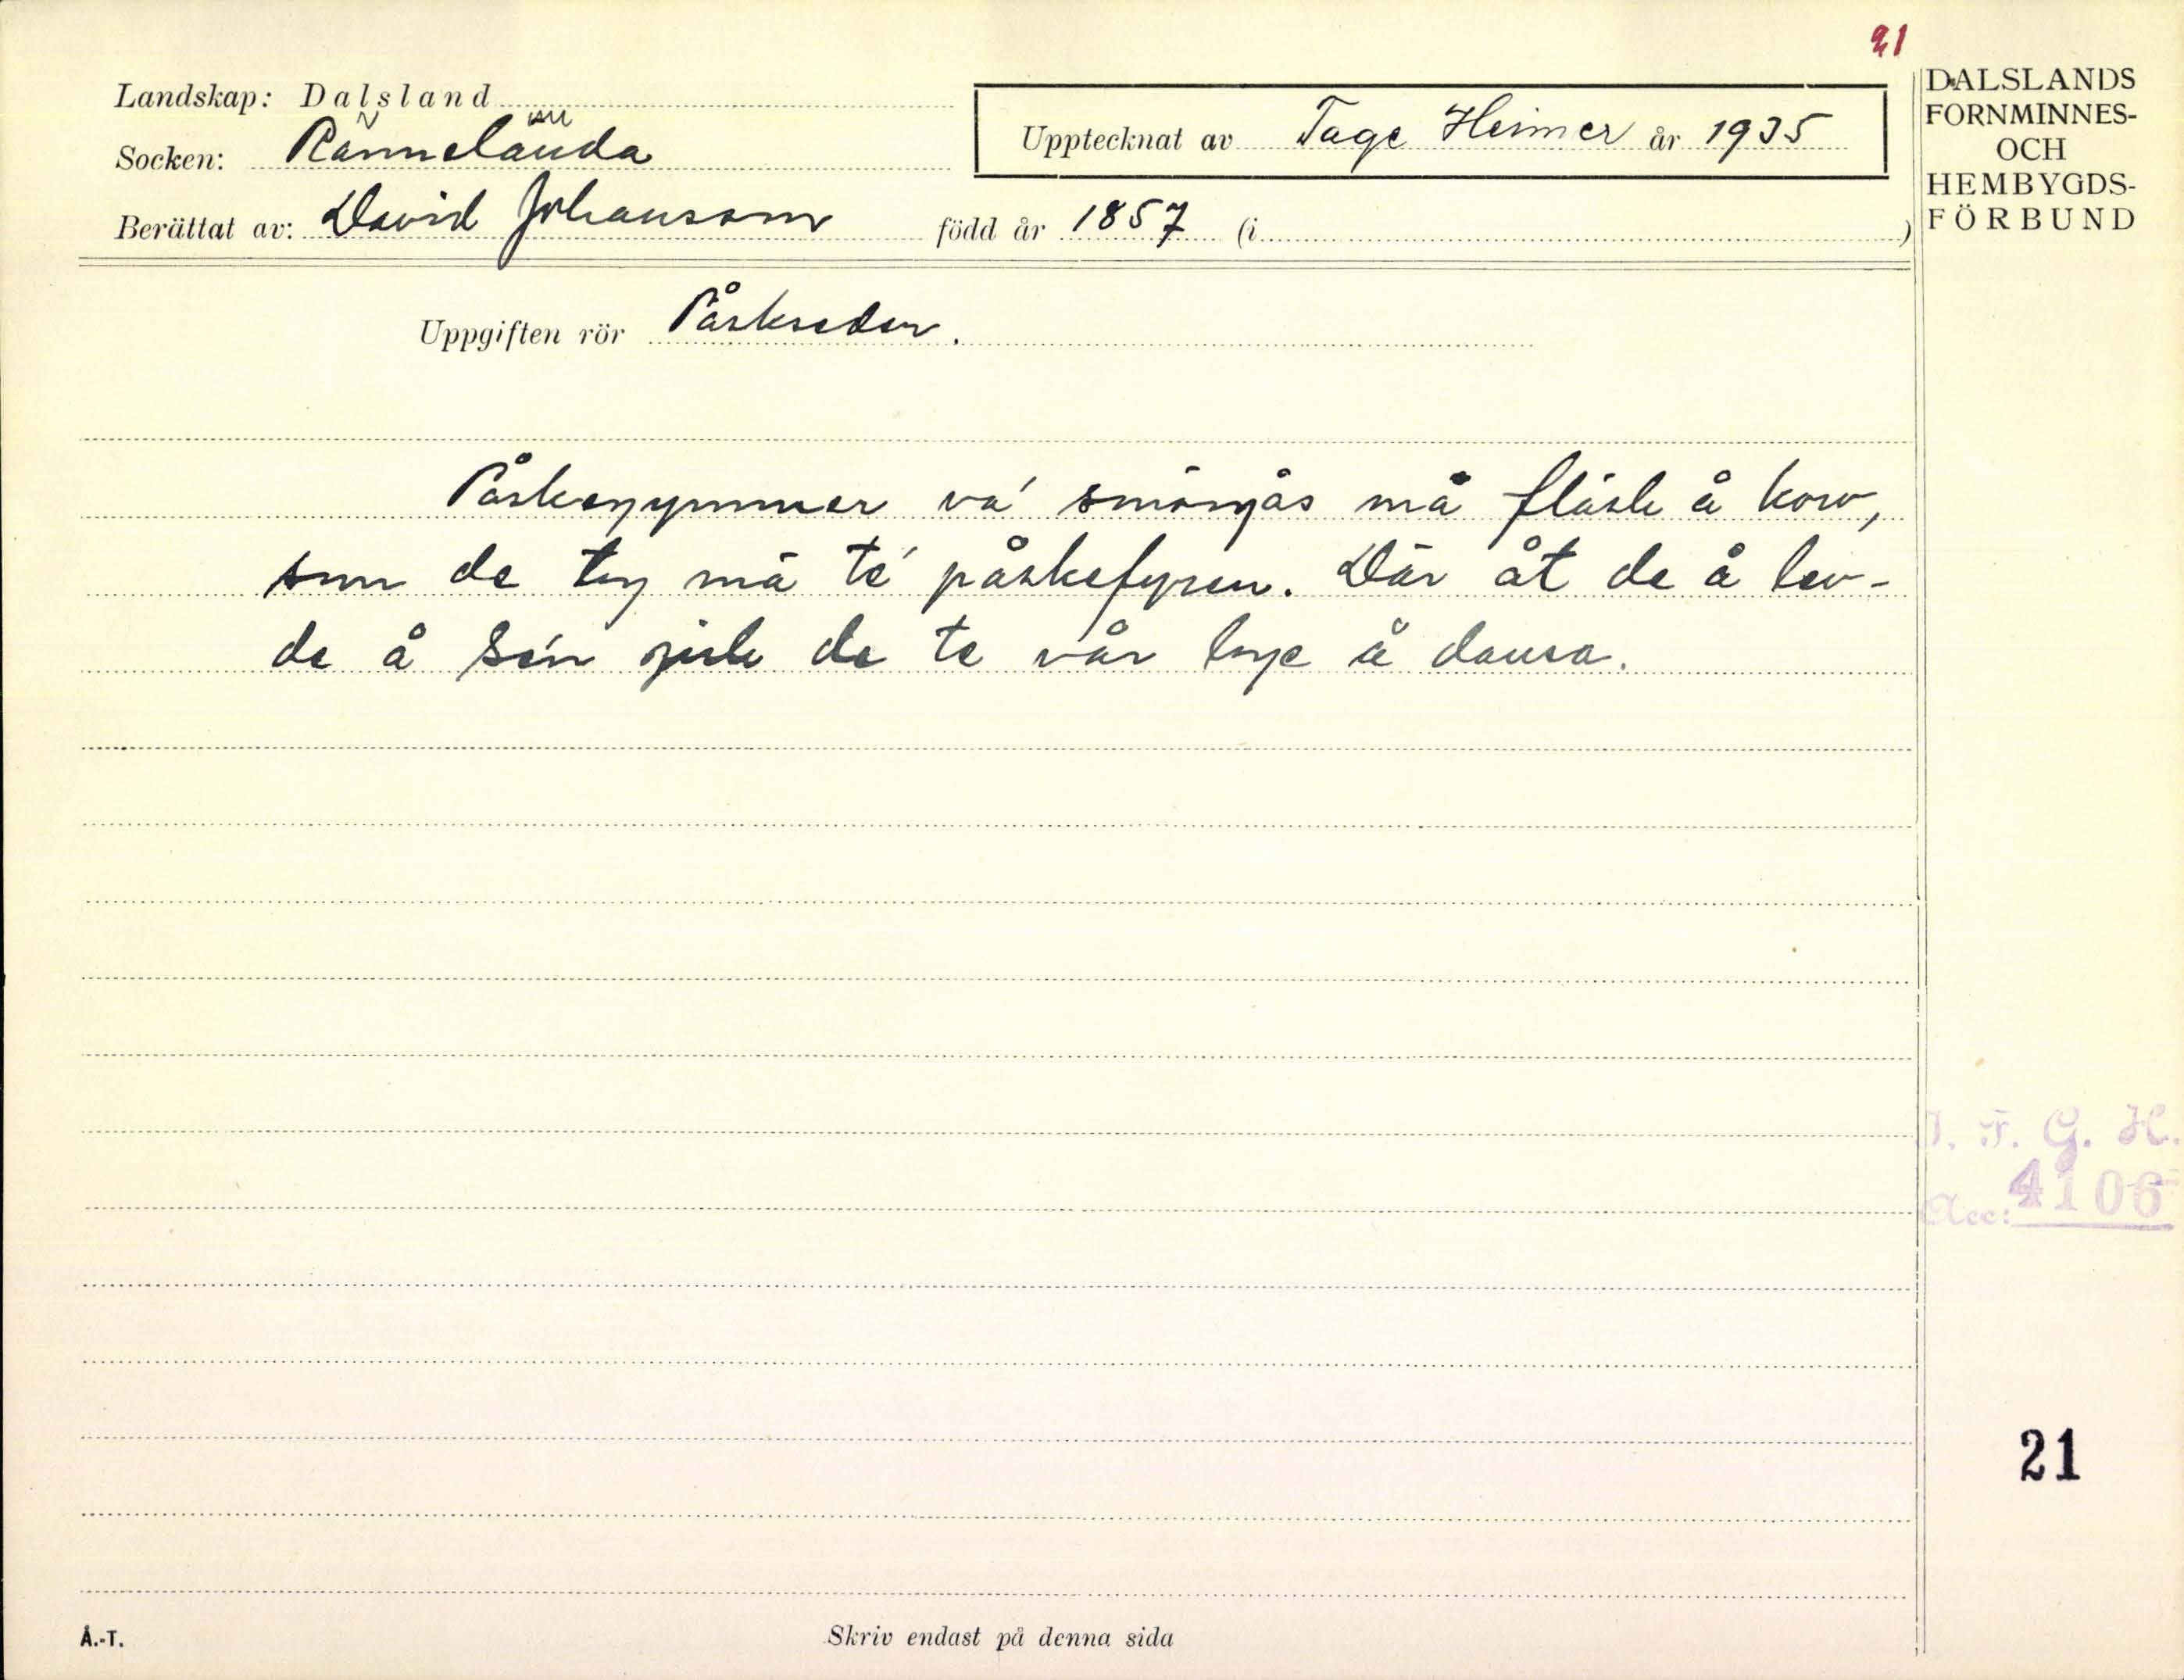 21
Landskap: Dalsland
Socken: Rännelanda
Berättat av: David Johansson född år 1857 (i )
Upptecknat av Tage Heimer år 1935
DALSLANDS
FORNMINNES-
OCH
HEMBYGDS-
FÖRBUND
Uppgiften rör Påskseder.
va' smörgås mä fläsk å korv,
som de tog mä te' påskefyren. Där åt de å lev-
de å sén de te vår å dansa.
I. F. G. H.
Acc: 4106
21
Å.-T.
Skriv endast på denna sida